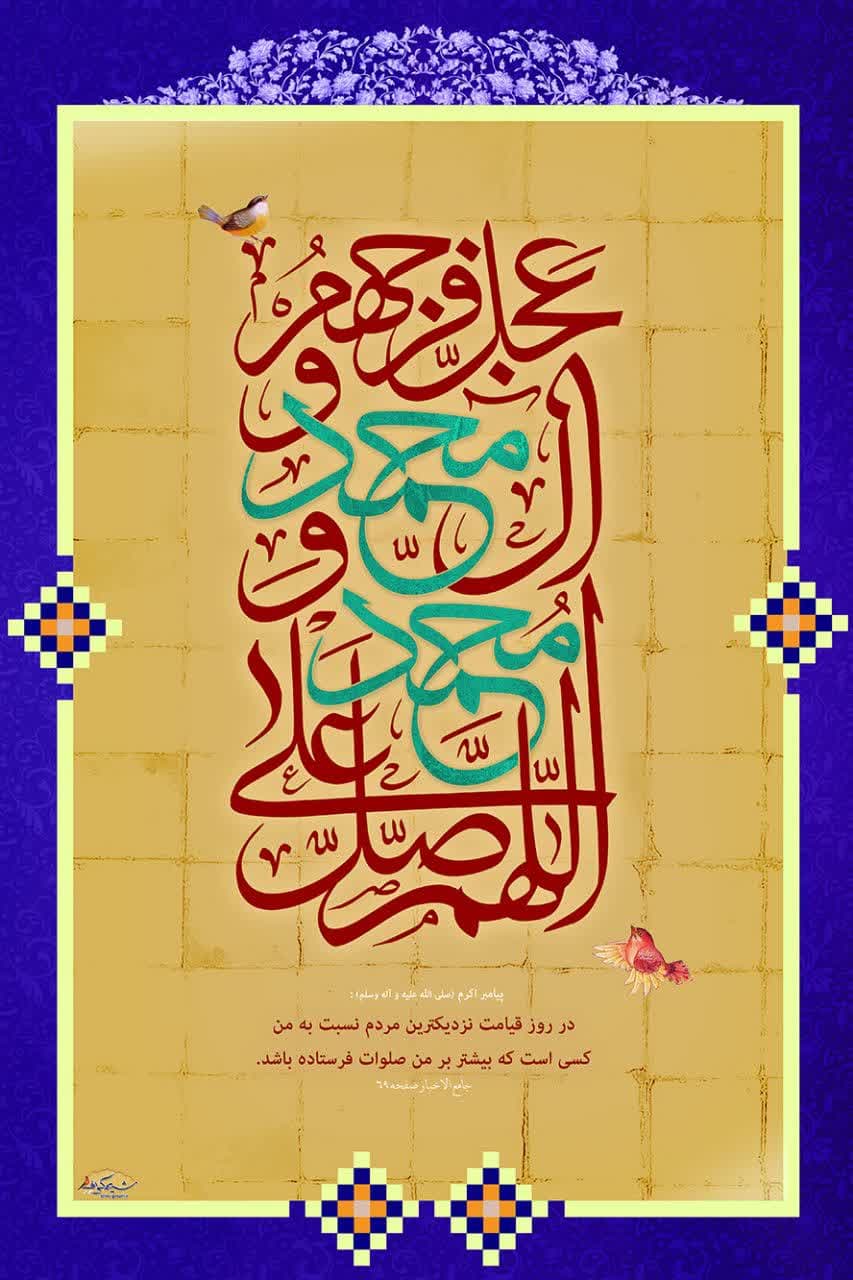 اللهم صل علی
محمد و
آل محمد و
عجل فرجهم
پیامبر اکرم (صلی الله علیه و آله وسلم) :
در روز قیامت نزدیکترین مردم نسبت به من
کسی است که بیشتر بر من صلوات فرستاده باشد.
جامع الاخبار صفحه ٦٩